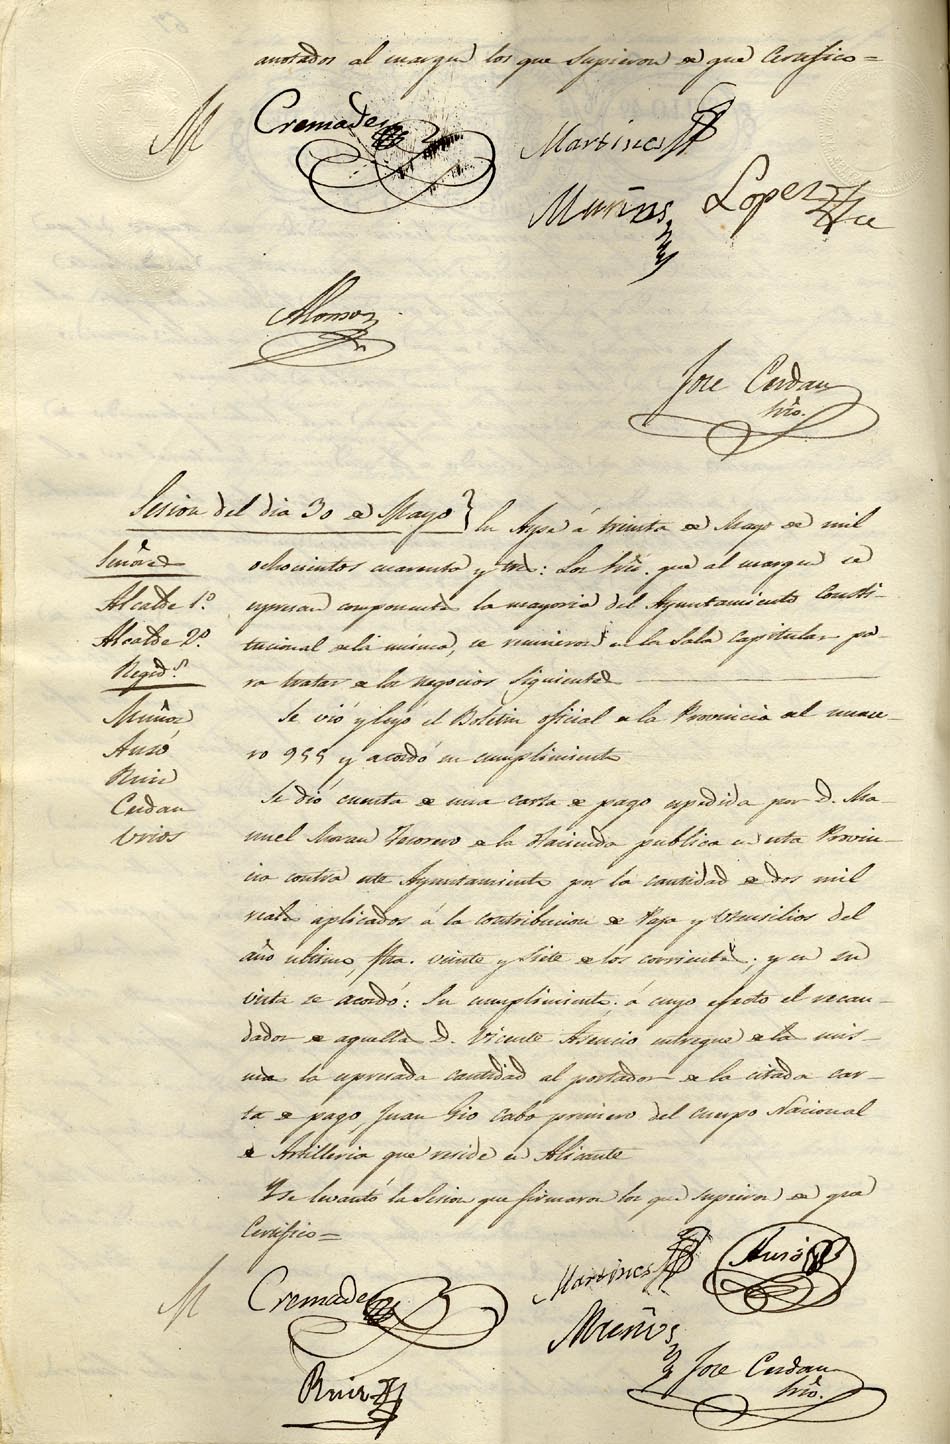 anotados al margen los que supieron de que Certifico=
M Cremades
Martines
Muños Lopez
Alonso
Jose Cerdan
Srio.
Sesion del dia 30 de Mayo} En Aspe á treinta de Mayo de mil
Señores
ochocientos cuarenta y tres: Los Sres. que al margen se
Alcalde 1.º
espresan componentes la mayoria del Ayuntamiento Consti-
Alcalde 2.º
tucional de la misma, se reunieron en la Sala Capitular pa-
Regid.s
ra tratar de los negocios siguientes
Muñoz
Se vió y leyó el Boletin oficial de la Provincia del nume-
Auró
ro 955 y acordó su cumplimiento
Ruiz
Cerdan
Se dió cuenta de una carta de pago espedida por D. Ma-
Urios
nuel Moran Tesorero de la Hacienda publica en esta Provin-
cia contra este Ayuntamiento por la cantidad de dos mil
reales aplicados á la contribucion de Paja y Utensilios del
año ultimo, fha. veinte y siete de los corrientes; y en su
vista se acordó: Su cumplimiento, á cuyo efecto el recau-
dador de aquella D. Vicente Asencio entregue de la mis-
ma la espresada cantidad al portador de la citada car-
ta de pago, Juan Gio Cabo primero del cuerpo Nacional
de Artilleria que reside en Alicante
Y se levantó la Sesion que firmaron los que supieron de que
Certifico=
M Cremades Martines Auró
Muños
Ruiz Jose Cerdan
Srio.